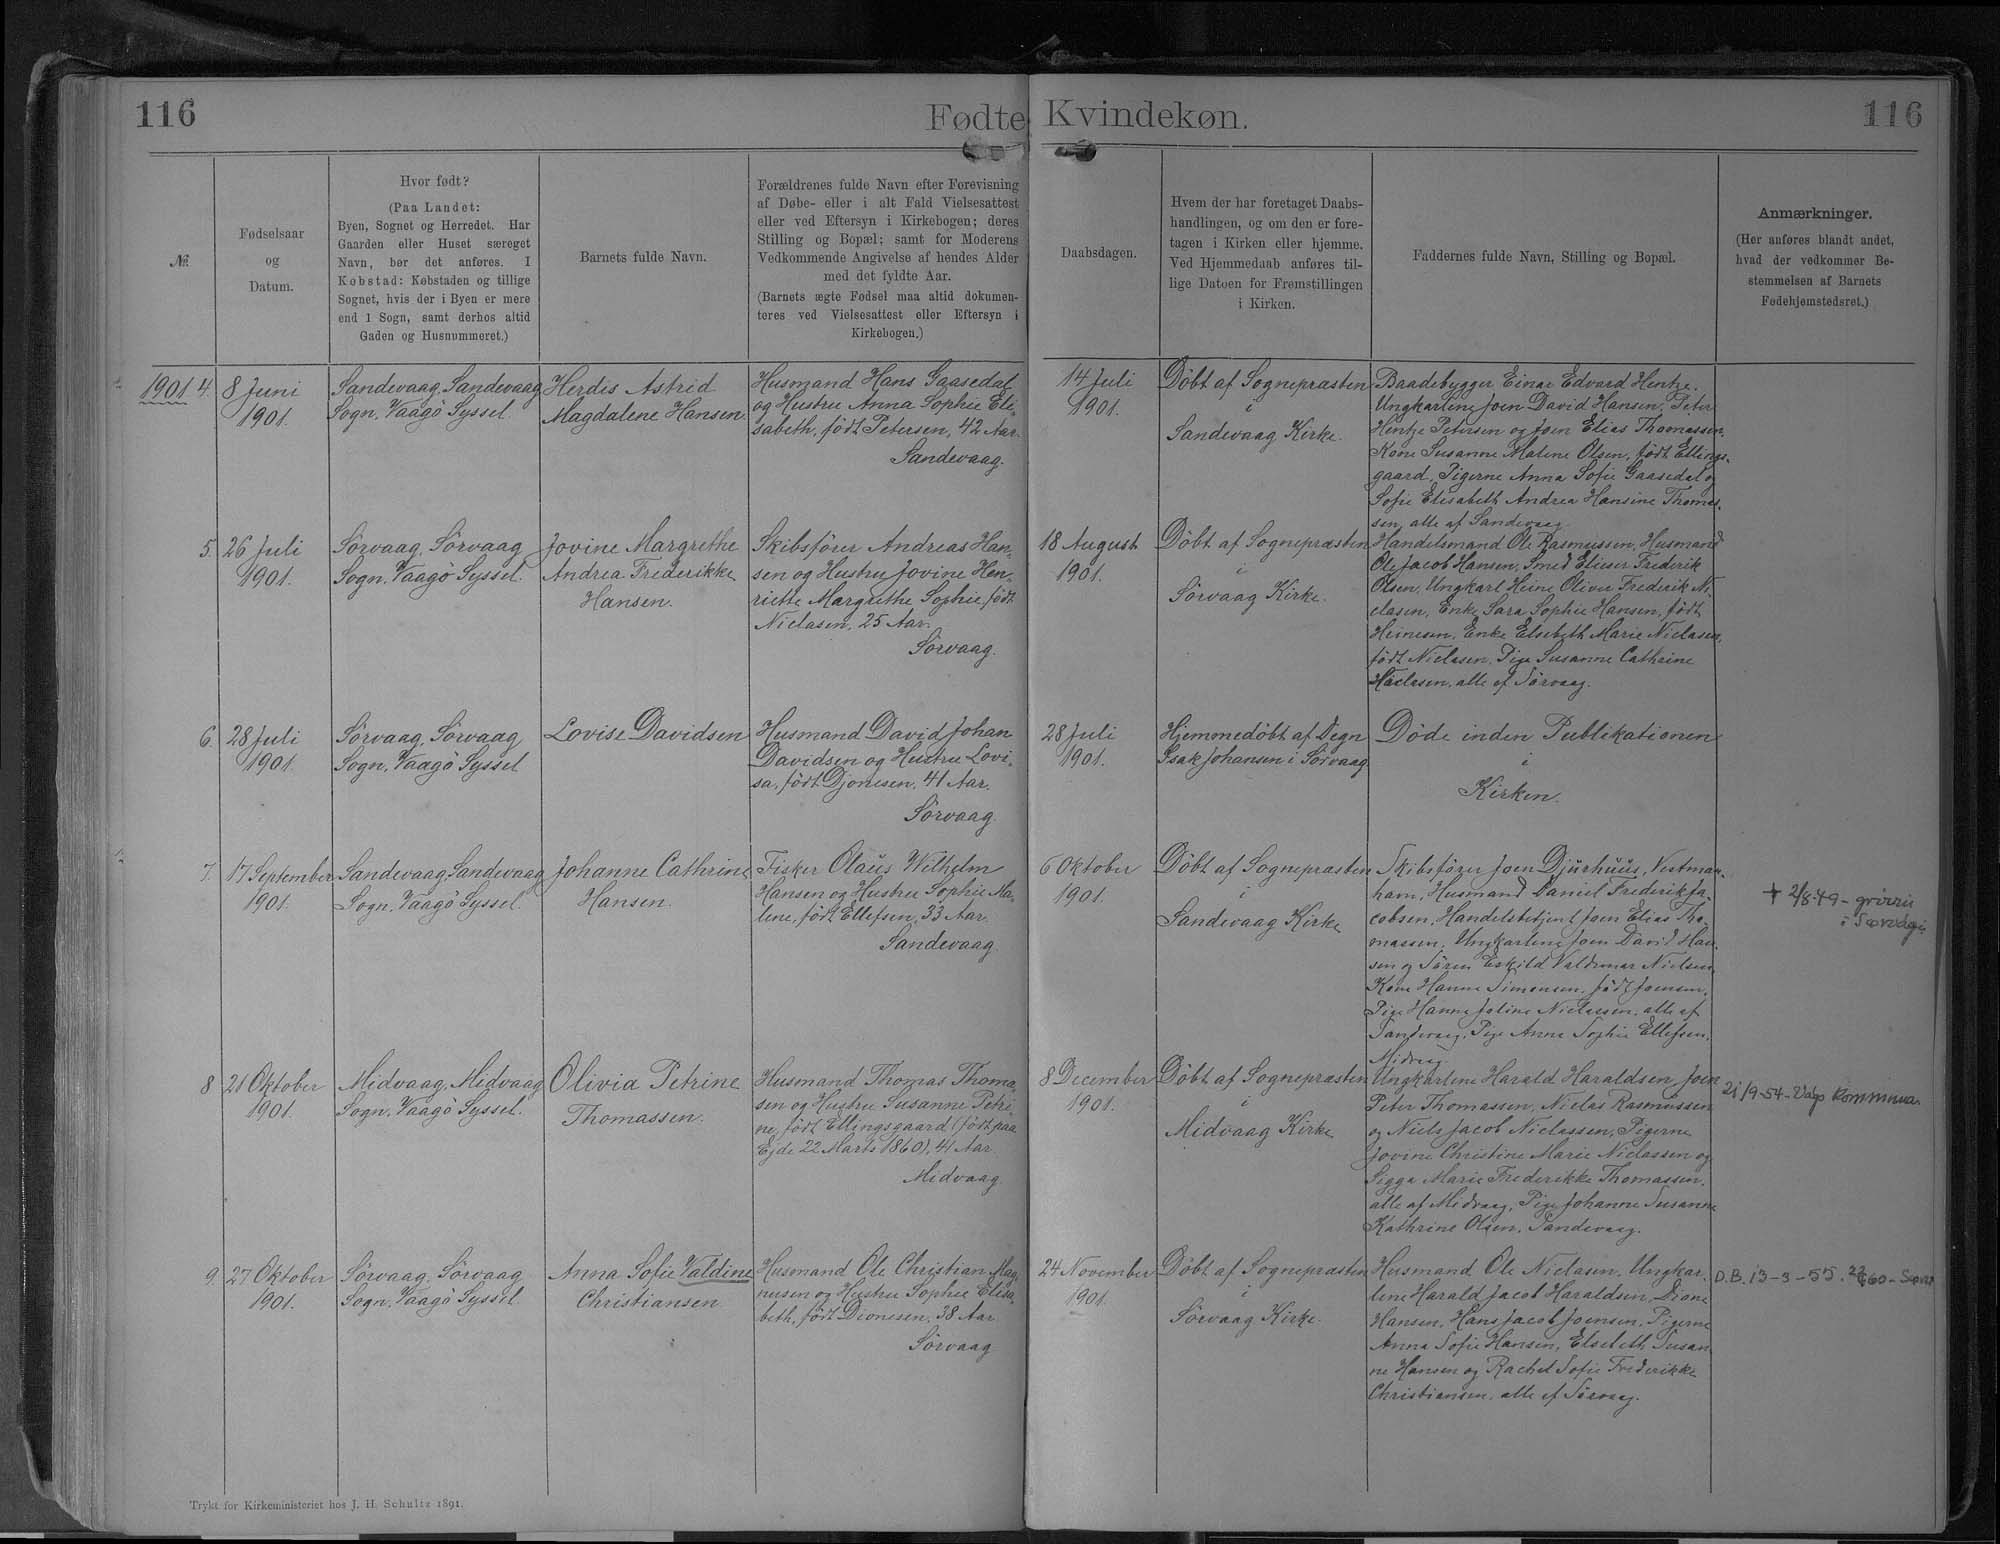 116
Fødte Kvindekøn.
116
№.
Fødselsaar
og
Datum.
Hvor født?
(Paa Landet:
Byen, Sognet og Herredet. Har
Gaarden eller Huset særeget
Navn, bør det anføres. I
Købstad: Købstaden og tillige
Sognet, hvis der i Byen er mere
end 1 Sogn, samt derhos altid
Gaden og Husnummeret.)
Barnets fulde Navn.
Forældrenes fulde Navn efter Forevisning
af Døbe- eller i alt Fald Vielsesattest
eller ved Eftersyn i Kirkebogen; deres
Stilling og Bopæl; samt for Moderens
Vedkommende Angivelse af hendes Alder
med det fyldte Aar.
(Barnets ægte Fødsel maa altid dokumen-
teres ved Vielsesattest eller Eftersyn i
Kirkebogen.)
Daabsdagen.
Hvem der har foretaget Daabs-
handlingen, og om den er fore-
tagen i Kirken eller hjemme.
Ved Hjemmedaab anføres til-
lige Datoen for Fremstillingen
i Kirken.
Faddernes fulde Navn, Stilling og Bopæl.
Anmærkninger.
(Her anføres blandt andet,
hvad der vedkommer Be-
stemmelsen af Barnets
Fødehjemstedsret.)
1901 4.
8 Juni
1901.
Sandevaag, Sandevaag
Sogn, Vaagö Syssel.
Herdis Astrid
Magdalene Hansen.
Husmand Hans Gaasedal
og Hustru Anna Sophie Eli-
sabeth, født Petersen, 42 Aar.
Sandevaag.
14 Juli
1901.
Döbt af Sognepræsten
i
Sandevaag Kirke.
Baadebygger Einar Edvard Hentze.
Ungkarlene Joen David Hansen, Peter
Hentze Petersen og Joen Elias Thomassen.
Kone Susanne Malene Olsen, født Ellings-
gaard, Pigerne Anna Sofie Gaasedal og
Sofie Elisabeth Andrea Hansine Thomas-
sen, alle af Sandevaag.
5.
26 Juli
1901.
Sörvaag, Sörvaag
Sogn, Vaagö Syssel.
Jovine Margrethe
Andrea Frederikke
Hansen.
Skibsförer Andreas Han-
sen og Hustru Jovine Hen-
riette Margrethe Sophie, født
Niclasen, 25 Aar.
Sörvaag.
18 August
1901.
Döbt af Sognepræsten
i
Sörvaag Kirke.
Handelsmand Ole Rasmussen, Husmand
Ole Jacob Hansen, Smed Elieser Frederik
Olsen, Ungkarl Heine Olivur Frederik Ni-
clasen, Enke Sara Sophie Hansen, født
Heinesen, Enke Elsebeth Marie Niclasen,
født Niclasen, Pige Susanne Cathrine
Niclasen, alle af Sörvaag.
6.
28 Juli
1901.
Sörvaag, Sörvaag
Sogn, Vaagö Syssel
Lovise Davidsen
Husmand David Johan
Davidsen og Hustru Lovi-
sa, født Djonesen, 41 Aar.
Sörvaag.
28 Juli
1901.
Hjemmedöbt af Degn
Isak Johansen i Sörvaag
Döde inden Publikationen
i
Kirken.
7.
17 September
1901.
Sandevaag, Sandevaag
Sogn, Vaagö Syssel.
Johanne Cathrine
Hansen.
Fisker Olaus Wilhelm
Hansen og Hustru Sophie Ma-
lene, født Ellefsen, 33 Aar.
Sandevaag.
6 Oktober
1901.
Döbt af Sognepræsten
i
Sandevaag Kirke.
Skibsförer Joen Djurhuus, Vestman-
ham, Husmand Daniel Frederik Ja-
cobsen, Handelsbetjent Joen Elias Tho-
massen, Ungkarlene Joen David Han-
sen og Sören Eskild Valdemar Nielsen,
Kone Hanne Simonsen, født Joensen,
Pige Hanne Joline Niclassen, alle af
Sandevaag, Pige Anna Sophie Ellefsen,
Midvaag.
+ 2/8-49 -
i
8
21 Oktober
1901.
Midvaag, Midvaag
Sogn, Vaagö Syssel.
Olivia Petrine
Thomassen.
Husmand Thomas Thoma-
sen og Hustru Susanne Petri-
ne, født Ellingsgaard (født paa
Ejde 22 Marts 1860), 41 Aar.
Midvaag.
8 December
1901.
Döbt af Sognepræsten
i
Midvaag Kirke
Ungkarlene Harald Haraldsen, Joen
Peter Thomassen, Niclas Rasmussen
og Niels Jacob Niclassen, Pigerne
Jovine Christine Marie Niclassen og
Sigga Marie Frederikke Thomassen,
alle af Midvaag, Pige Johanne Susanne
Kathrine Olsen, Sandevaag.
21/9-54 - kommuna.
9.
27 Oktober
1901.
Sörvaag, Sörvaag
Sogn, Vaagö Syssel.
Anna Sofie Valdine
Christiansen
Husmand Ole Christian Mag-
nusen og Hustru Sophie Elisa-
beth, født Dionesen, 38 Aar.
Sörvaag
24 November
1901.
Döbt af Sognepræsten
i
Sörvaag Kirke.
Husmand Ole Niclasen, Ungkar-
lene Harald Jacob Haraldsen, Dione
Hansen, Hans Jacob Joensen, Pigerne
Anna Sofie Hansen, Elsebeth Susan-
ne Hansen og Rachel Sofie Frederikke
Christiansen, alle af Sörvaag.
D.B. 13-3-55.
Trykt for Kirkeministeriet hos J. H. Schultz 1891.